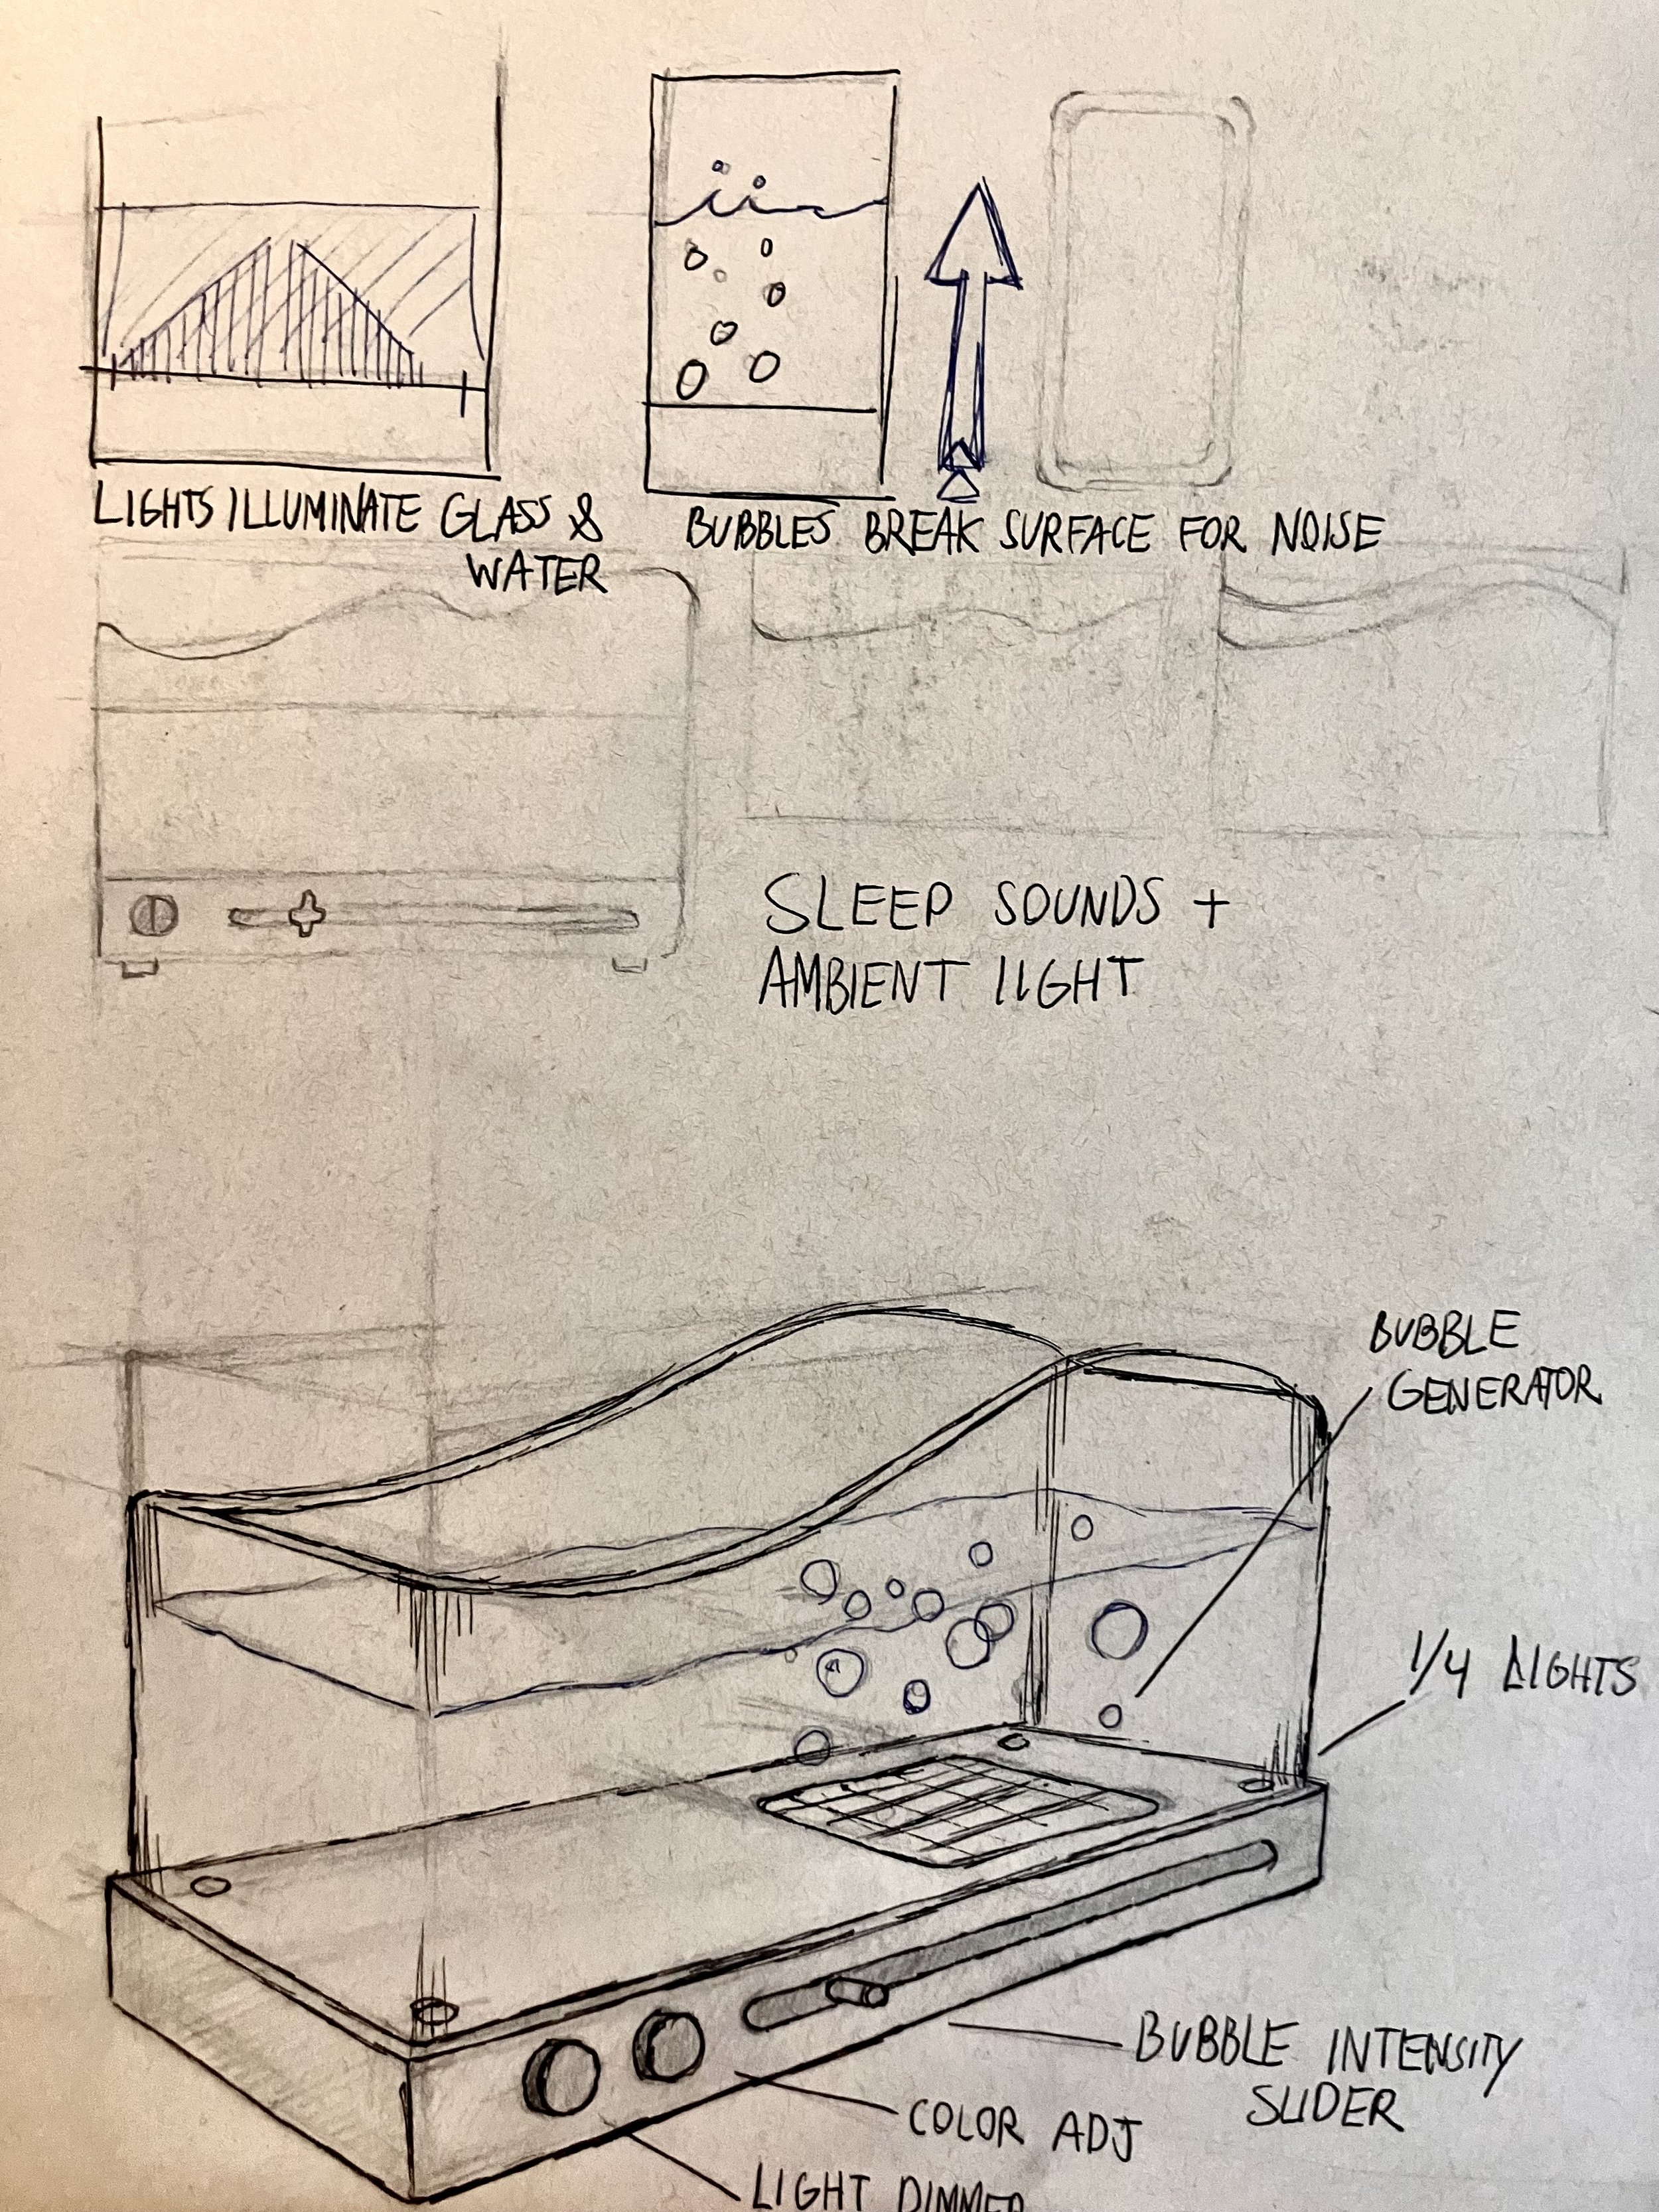 LIGHTS ILLUMINATE GLASS &
WATER
BUBBLES BREAK SURFACE FOR NOISE
SLEEP SOUNDS +
AMBIENT LIGHT
BUBBLE
GENERATOR
1/4 LIGHTS
BUBBLE INTENSITY
SLIDER
COLOR ADJ
LIGHT DIMMER